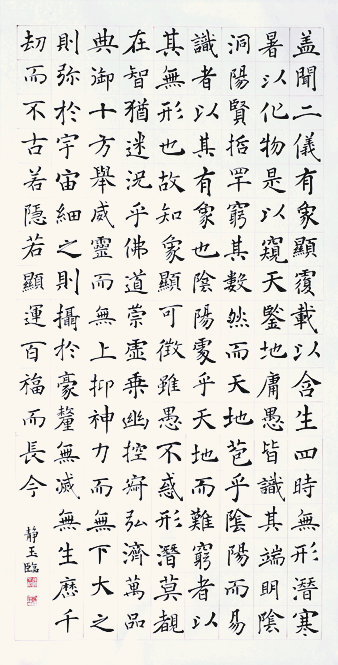 盖聞二儀有象顯覆載以含生四時無形潛寒
暑以化物是以窺天鑒地庸愚皆識其端明陰
洞陽賢哲罕窮其數然而天地苞乎陰陽而易
識者以其有象也陰陽處乎天地而難窮者以
其無形也故知象顯可徵雖愚不惑形潛莫覩
在智猶迷況乎佛道崇虛乘幽控寂弘濟萬品
典御十方舉威靈而無上抑神力而無下大之
則弥於宇宙細之則攝於豪釐無滅無生歷千
劫而不古若隱若顯運百福而長今
静玉臨